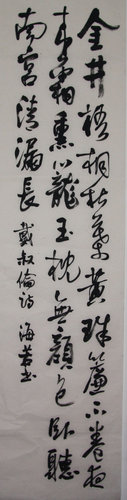 金井梧桐秋葉黄珠簾不卷夜
来霜熏籠玉枕無顔色卧聽
南宫清漏長 戴叔倫詩 海書